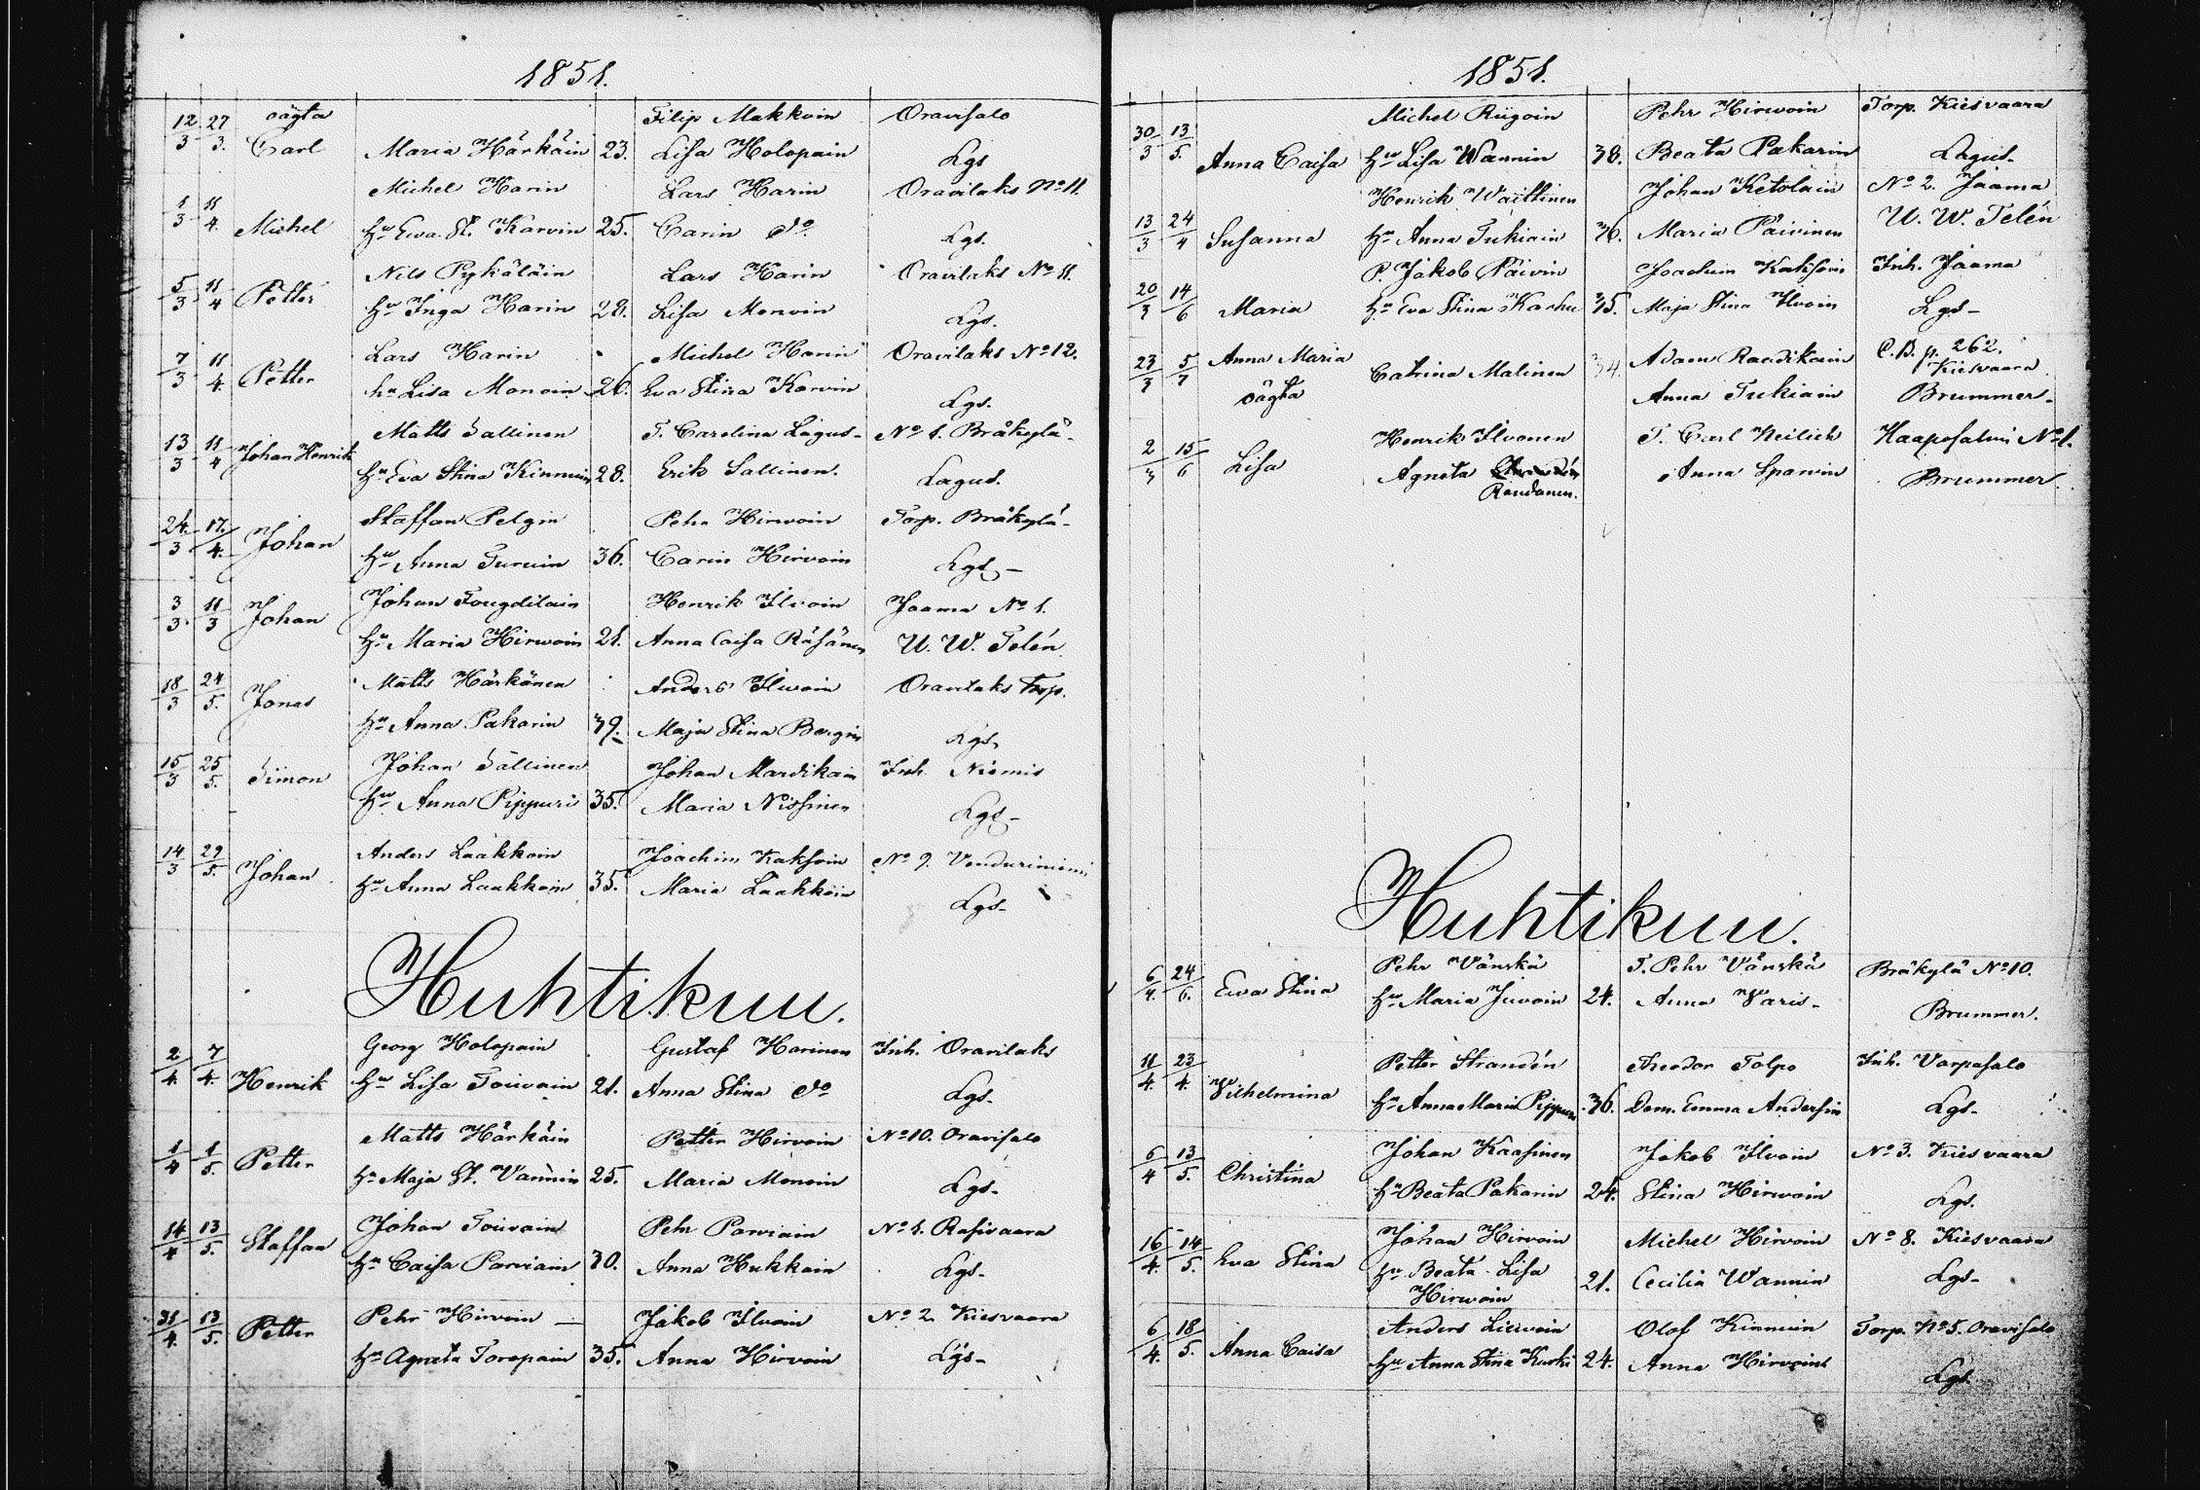 1851.
oägta Filip Makkoin Oravisalo
12/3 27/3. Carl Maria Härkäin 23. Lisa Holopain Lgs
Michel Harin Lars Harin Oravilaks No 11.
1/3 11/4. Michel Hu Ewa St. Karvin 25. Carin do Lgs.
Nils Pykäläin Lars Harin Oravilaks No 11.
5/3 11/4 Petter Hu Inga Harin 28. Lisa Monoin Lgs.
Lars Harin Michel Harin Oravilaks No 12.
7/3 11/4. Petter hu Lisa Monoin 26. Eva Stina Karvin Lgs.
Matts Sallinen T. Carolina Lagus- No 1. Bråkylä-
13/3 11/4 Johan Henrik Hu Eva Stina Kinnuin 28. Erik Sallinen. Lagus.
Staffan Pelgin Pehr Hirvoin Torp. Bråkylä-
24/3 17/4. Johan Hu Anna Turuin 36. Carin Hirvoin Lgs-
Johan Henrik Ilvoin Jaama No 1.
3/3 11/3 Johan Hu Maria Hirwoin 21. Anna Caisa Räsänen U. W. Telén
Matts Härkänen Anders Ilwoin Oravilaks Torp.
18/3 24/5. Jonas Hu Anna Pakarin 39. Maja Stina Bergin Lgs,
Johan Sallinen Johan Mardikain Inh. Niemis
15/3 25/5. Simon Hu Anna Pippuri 35. Maria Nissinen Lgs-
Anders Laakkoin Joachim Kaksoin No 9.
14/3 29/5. Johan Hu Anna Laakkoin 35. Maria Laakkoin Lgs-
Huhtikuu.
Georg Holopain Gustaf Harinen Inh. Oravilaks
2/4. 7/4. Henrik Hu Lisa Toivain 21. Anna Stina do Lgs-
Matts Härkäin Petter Hirvoin No 10. Oravisalo
1/4 1/5. Petter Hu Maja St. Vännin 25. Maria Monoin Lgs-
Johan Toivain Pehr Parviain No 1. Rasivaara
14/4 13/5. Staffan Hu Caisa Parviain 30. Anna Hukkain Lgs-
Pehr Hirvoin - Jakob Ilvoin No 2. Kiesvaara
31/4. 13/5. Petter Hu Agneta Toropain 35. Anna Hirvoin Lgs-
1851.
Michel Riigoin Pehr Hirwoin Torp. Kiesvaara
30/3 13/5. Anna Caisa Hu Lisa Wannin 38. Beata Pakarin Lagus-
Henrik Waittinen Johan Ketolain No 2. Jaama
13/3 24/4 Susanna Hu Anna Tukiain 36. Maria Päivinen U. W. Telén
P. Jakob Päivin Joachim Kaksoin Inh. Jaama
20/3 14/6 Maria Hu Eva Stina Karhu 35. Maja Stina Ilvoin Lgs-
23/3 5/7 Anna Maria Catrina Malinen 34. Adam Raadikain C.B. p. 262. Kiesvaara
oägta Anna Tukiain Brummer-
Henrik Ilvonen T. Carl Neilich Haapasalmi No 1.
2/3 15/6 Lisa Agneta Anna Sparvin Brummer
Raudanen.
Huhtikuu.
Pehr Vänskä T. Pehr Vänskä Bråkylä No 10.
6/4. 24/6. Ewa Stina Hu Maria Juvoin 24. Anna Varis- Brummer.
Petter Strandén Theodor Tolpo Inh. Varpasalo
11/4. 23/4. Vilhelmina Hu Anna Maria Pippuri 36. Dem. Emma Andersin Lgs-
Johan Kaasinen Jakob Ilvoin No 3. Kiesvaara
6/4 13/5. Christina Hu Beata Pakarin 24. Stina Hirwoin Lgs.
Johan Hirvoin Michel Hirvoin No 8. Kiesvaara
16/4. 14/5. Eva Stina Hu Beata Lisa 21. Cecilia Wannin Lgs-
Hirwoin
Anders Liervoin Olof Kinnuin Torp. No 5. Oravisalo
6/4. 18/5. Anna Caisa Hu Anna Stina Kurki 24. Anna Hirvoin Lgs.